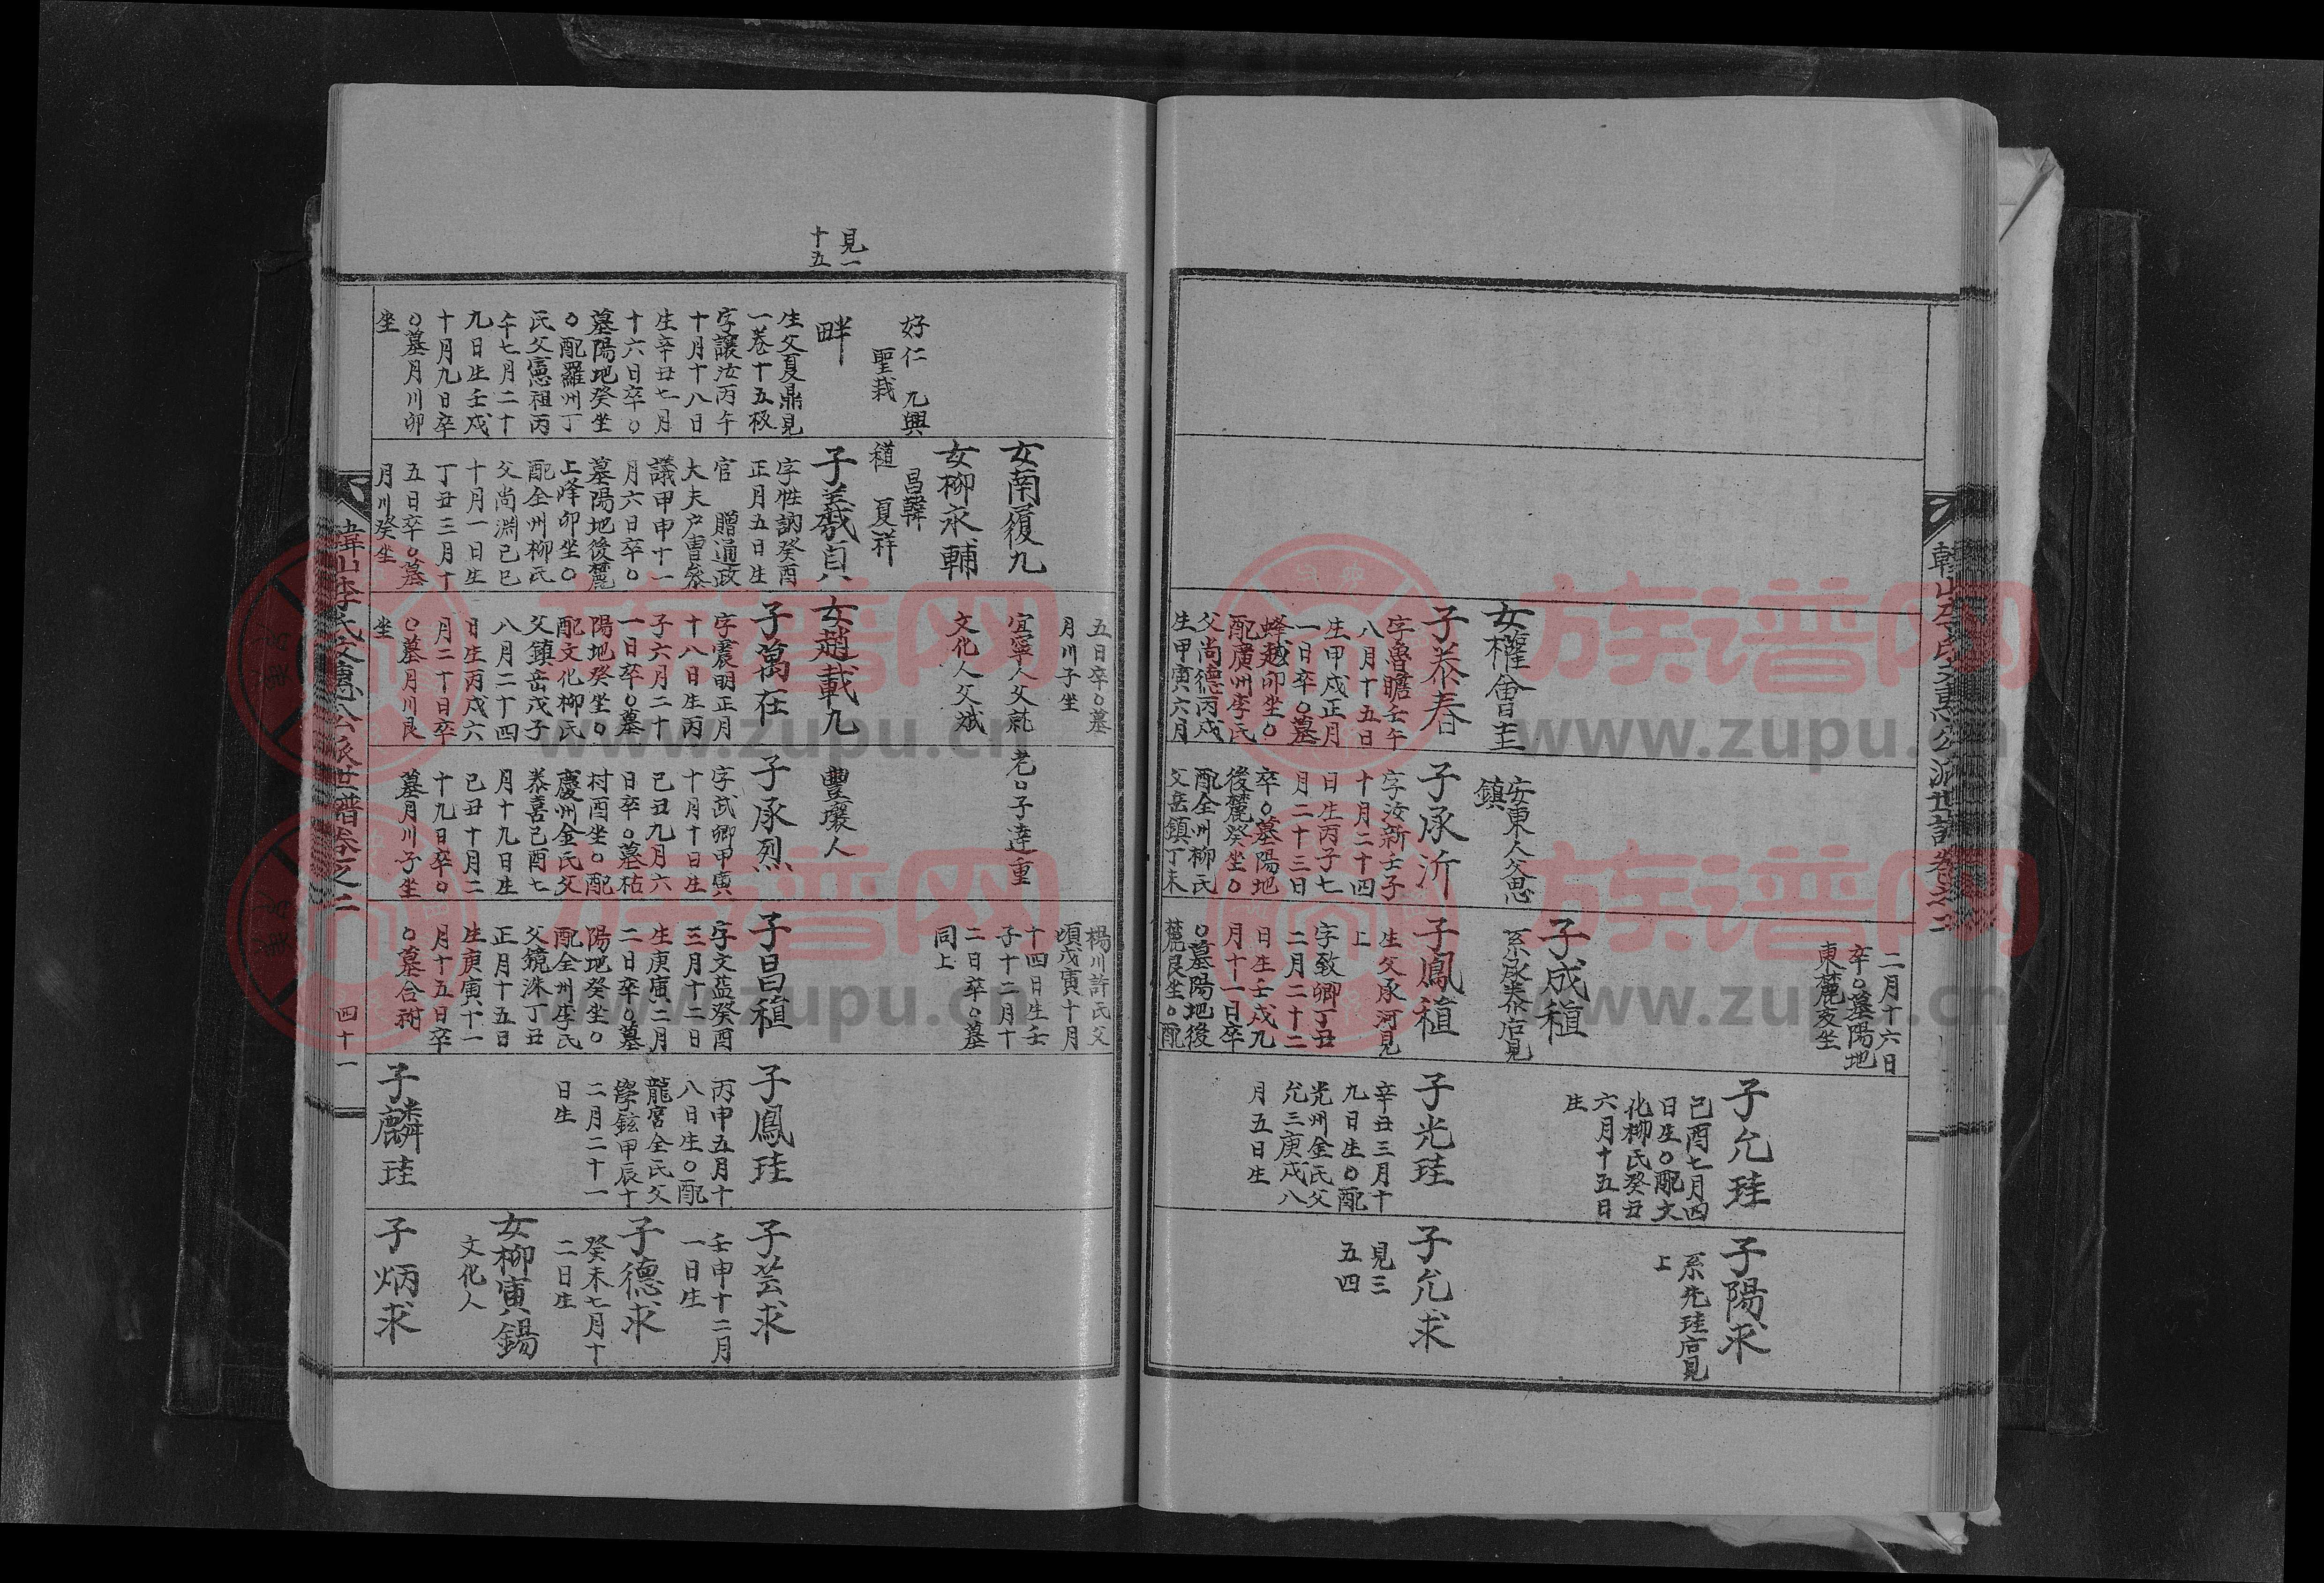 二月十六日
卒○墓陽地
東麓亥坐
女權會圭
子泰春
字魯瞻壬午
八月十五日
生甲戌正月
一日卒○墓
蜂越卯坐○
配廣州李氏
父尚德丙戌
生甲寅六月
安東人父思
鎮
子承沂
字汝新壬子
十月二十四
日生丙子七
月二十三日
卒○墓陽地
後麓癸坐○
配全州柳氏
父岳鎮丁未
子成稙
系承泰后見
子鳳稙
生父承河見
上
字致卿丁丑
二月二十二
日生壬戌九
月十一日卒
○墓陽地後
麓艮坐○配
子允珪
己酉七月四
日生○配文
化柳氏癸丑
六月十五日
生
子光珪
辛丑三月十
九日生○配
光州金氏父
允三庚戌八
月五日生
子陽求
系先珪后見
上
子允求
見三
五四
見一
十五
好仁 九興
聖裁
畔
生父夏鼎見
一卷十五板
字讓汝丙午
十月十八日
生辛丑七月
十六日卒○
墓陽地癸坐
○配羅州丁
氏父憲祖丙
午七月二十
九日生壬戌
十月九日卒
○墓月川卯
坐
女南履九
女柳永輔
昌韓
夏祥
子羲貞
字性訥癸酉
正月五日生
官 贈通政
大夫户曹參
議甲申十一
月六日卒○
墓陽地後麓
上峰卯坐○
配全州柳氏
父尚淵己巳
十月一日生
丁丑三月十
五日卒○墓
月川癸坐
五日卒○墓
月川子坐
宜寧人父就
文化人父斌
女趙載九
子萬在
字震明正月
十八日生丙
子六月二十
一日卒○墓
陽地癸坐○
配文化柳氏
父鎮岳戊子
八月二十四
日生丙戌六
月二十日卒
○墓月川艮
坐
老○子達重
豐壤人
子承烈
字武卿甲寅
十月十日生
己丑九月六
日卒○墓枯
村酉坐○配
慶州金氏父
泰喜己酉七
月十九日生
己丑十月二
十九日卒○
墓月川子坐
楊川許氏父
頊戊寅十月
十四日生壬
子十二月十
二日卒○墓
同上
子昌稙
字文益癸酉
三月十二日
生庚寅二月
二日卒○墓
陽地癸坐○
配全州李氏
父鏡洙丁丑
正月十五日
生庚寅十一
月十五日卒
○墓合祔
子鳳珪
丙申五月十
八日生○配
龍宮全氏父
學鉉甲辰十
二月二十一
日生
子麟珪
子芸求
壬申十二月
一日生
子德求
癸未七月十
二日生
女柳寅錫
文化人
子炳求
四十一
族谱网
www.zupu.cn
族谱网
www.zupu.cn
族谱网
www.zupu.cn
族谱网
www.zupu.cn